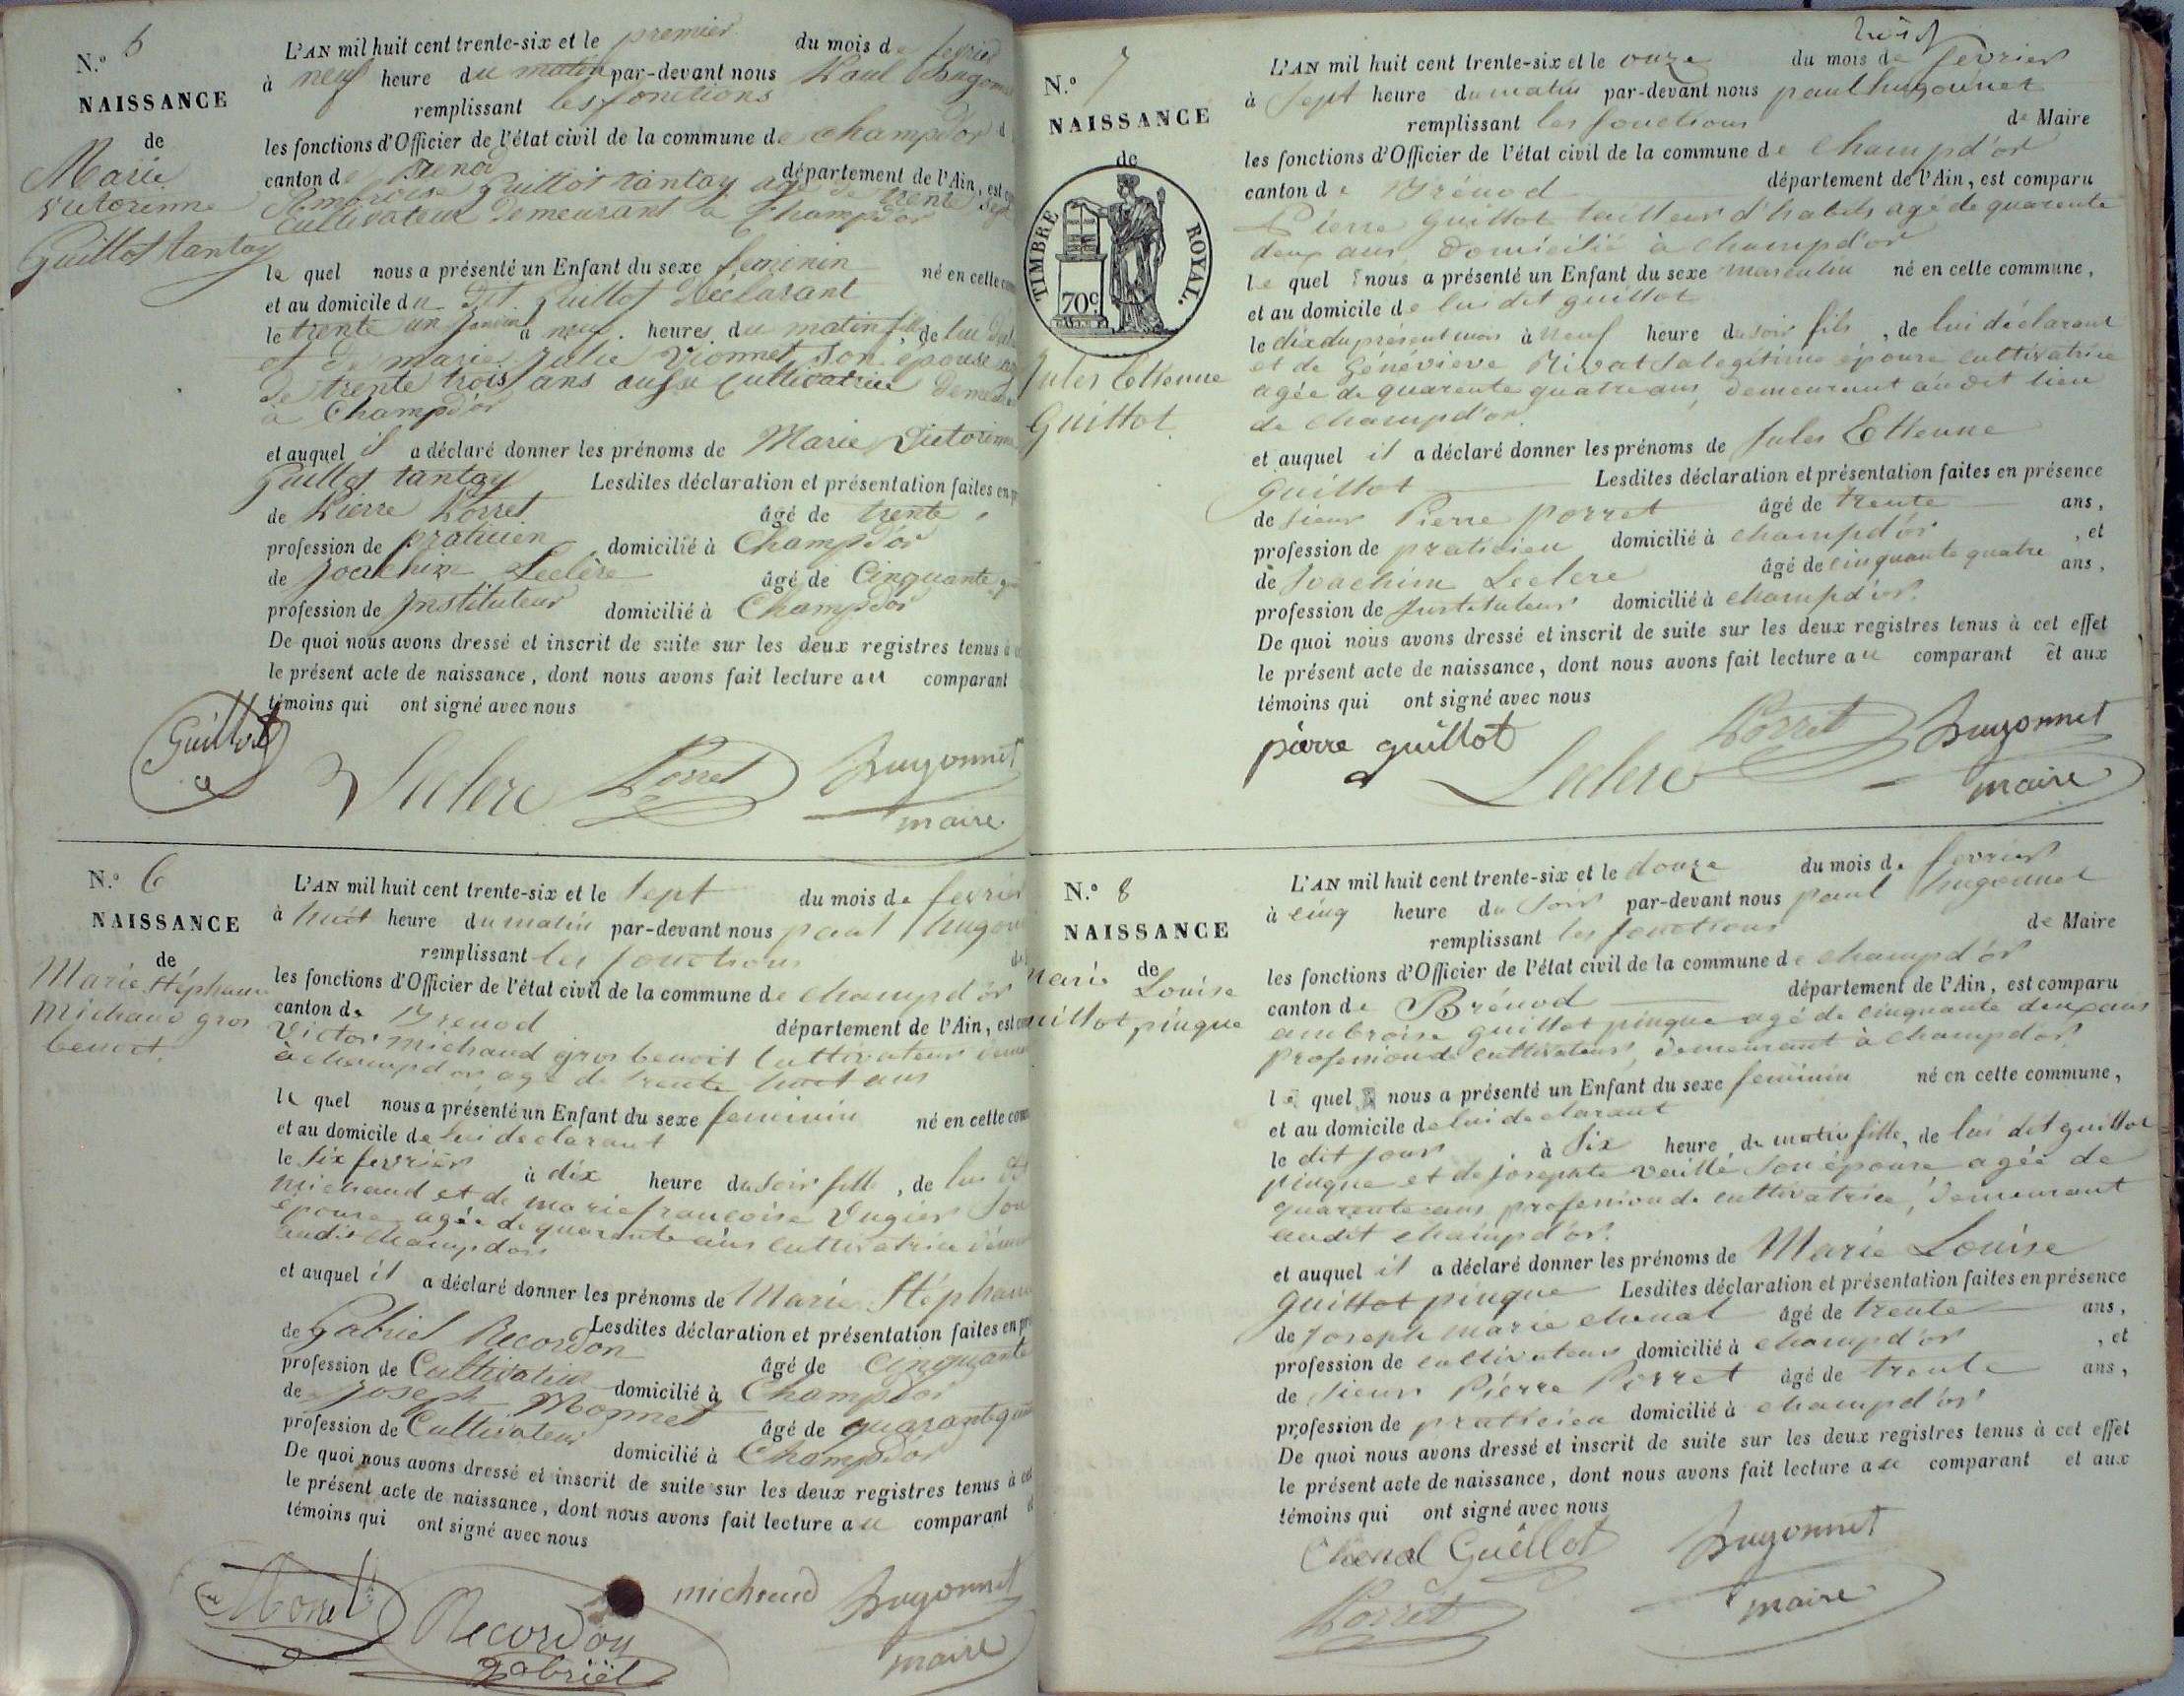 N.o 5
NAISSANCE
de
Marie
victorinne
Guillot tantay
L'AN mil huit cent trente-six et le premier du mois de fevrier
à neuf heure du matin par-devant nous Paul hugonnet
remplissant les fonctions
les fonctions d'Officier de l'état civil de la commune de champdor
canton de Brenod département de l'Ain, est
Ambroise Guillot tantay agé de trente sept
cultivateur demeurant à Champdor
le quel nous a présenté un Enfant du sexe feminin né en cette
et au domicile du dit Guillot déclarant
le trente un janvier à neuf heures du matin fille, de lui
et de marie julie Vionnet son épouse
de trente trois ans aussi cultivatrice
à Champdor
et auquel il a déclaré donner les prénoms de Marie Victorinne
Guillot tantay Lesdites déclaration et présentation faites en
de Pierre Porret âgé de trente
profession de praticien domicilié à Champdor
de Joachim Leclère âgé de Cinquante
profession de Instituteur domicilié à Champdor
De quoi nous avons dressé et inscrit de suite sur les deux registres tenus à
le présent acte de naissance, dont nous avons fait lecture au comparant
témoins qui ont signé avec nous
Guillot
Leclere Porret hugonnet
maire
N.o 6
NAISSANCE
de
Marie Stéphanie
Michaud gros
benoit
L'AN mil huit cent trente-six et le sept du mois de fevrier
à huit heure du matin par-devant nous paul hugonnet
remplissant les fonctions
les fonctions d'Officier de l'état civil de la commune de champd'or
canton de Brenod département de l'Ain, est
Victor michaud gros benoit cultivateur
à champdor, agé de trente huit ans
le quel nous a présenté un Enfant du sexe feminin né en cette
et au domicile de lui declarant
le six fevrier à dix heure du soir fille, de lui dit
michaud et de marie françoise Vugier son
épouse agée de quarante ans cultivatrice
audit champdor
et auquel il a déclaré donner les prénoms de Marie Stéphanie
Lesdites déclaration et présentation faites en
de Gabriel Recordon âgé de cinquante
profession de Cultivateur domicilié à Champdor
de Joseph Monnet âgé de quarante
profession de Cultivateur domicilié à Champdor
De quoi nous avons dressé et inscrit de suite sur les deux registres tenus à cet
le présent acte de naissance, dont nous avons fait lecture au comparant
témoins qui ont signé avec nous
Monet Recordon michaud hugonnet
gabriël maire
N.o 7
NAISSANCE
de
TIMBRE ROYAL.
70c
Jules Etienne
Guillot
L'AN mil huit cent trente-six et le onze du mois de fevrier
à sept heure du matin par-devant nous paul hugounet
remplissant les fonctions de Maire
les fonctions d'Officier de l'état civil de la commune de champd'or
canton de Brénod département de l'Ain, est comparu
Pierre guillot tailleur d'habits agé de quarente
deux ans, domicilié à champd'or
le quel nous a présenté un Enfant du sexe masculin né en cette commune,
et au domicile de lui dit guillot
le dix du présent mois à neuf heure du soir fils, de lui déclarant
et de Généviève Nivat sa legitime épouse cultivatrice
agée de quarente quatre ans, demeurant audit lieu
de champd'or.
et auquel il a déclaré donner les prénoms de Jules Etienne
Guillot Lesdites déclaration et présentation faites en présence
de sieur Pierre porret âgé de trente ans,
profession de praticien domicilié à champd'or, et
de Joachim Leclere âgé de cinquante quatre ans,
profession de Instituteur domicilié à champd'or.
De quoi nous avons dressé et inscrit de suite sur les deux registres tenus à cet effet
le présent acte de naissance, dont nous avons fait lecture au comparant et aux
témoins qui ont signé avec nous
pierre guillot Porret hugonnet
Leclere maire
N.o 8
NAISSANCE
de
Marie Louise
Guillot pinque
L'AN mil huit cent trente-six et le douze du mois de fevrier
à cinq heure du soir par-devant nous paul hugonnet
remplissant les fonctions de Maire
les fonctions d'Officier de l'état civil de la commune de champd'or
canton de Brénod département de l'Ain, est comparu
ambroise guillot pinque agé de cinquante deux ans
profession de cultivateur, demeurant à champd'or.
le quel nous a présenté un Enfant du sexe feminin né en cette commune,
et au domicile de lui declarant
le dit jour, à six heure du matin fille, de lui dit guillot
pinque et de josephte vaillé son épouse agée de
quarente ans profession de cultivatrice, demeurant
audit champd'or.
et auquel il a déclaré donner les prénoms de Marie Louise
Guillot pinque Lesdites déclaration et présentation faites en présence
de Joseph Marie chenal âgé de trente ans,
profession de cultivateur domicilié à champd'or, et
de sieur Pierre Porret âgé de trente ans,
profession de praticien domicilié à champd'or
De quoi nous avons dressé et inscrit de suite sur les deux registres tenus à cet effet
le présent acte de naissance, dont nous avons fait lecture au comparant et aux
témoins qui ont signé avec nous
Chenal Guillot hugonnet
Porret maire